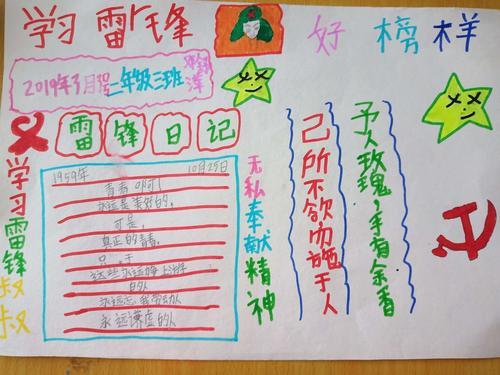 学习 雷广锋 好 榜 样
2019年3月 二年级三班
雷锋日记
1959年 10月25日
青春啊!
永远是美好的,
可是,
真正的青春,
只
永远
永远忘我劳动
永远谦虚的人
学习雷锋叔叔
无私奉献精神
己所不欲勿施于人
予人玫瑰,手有余香